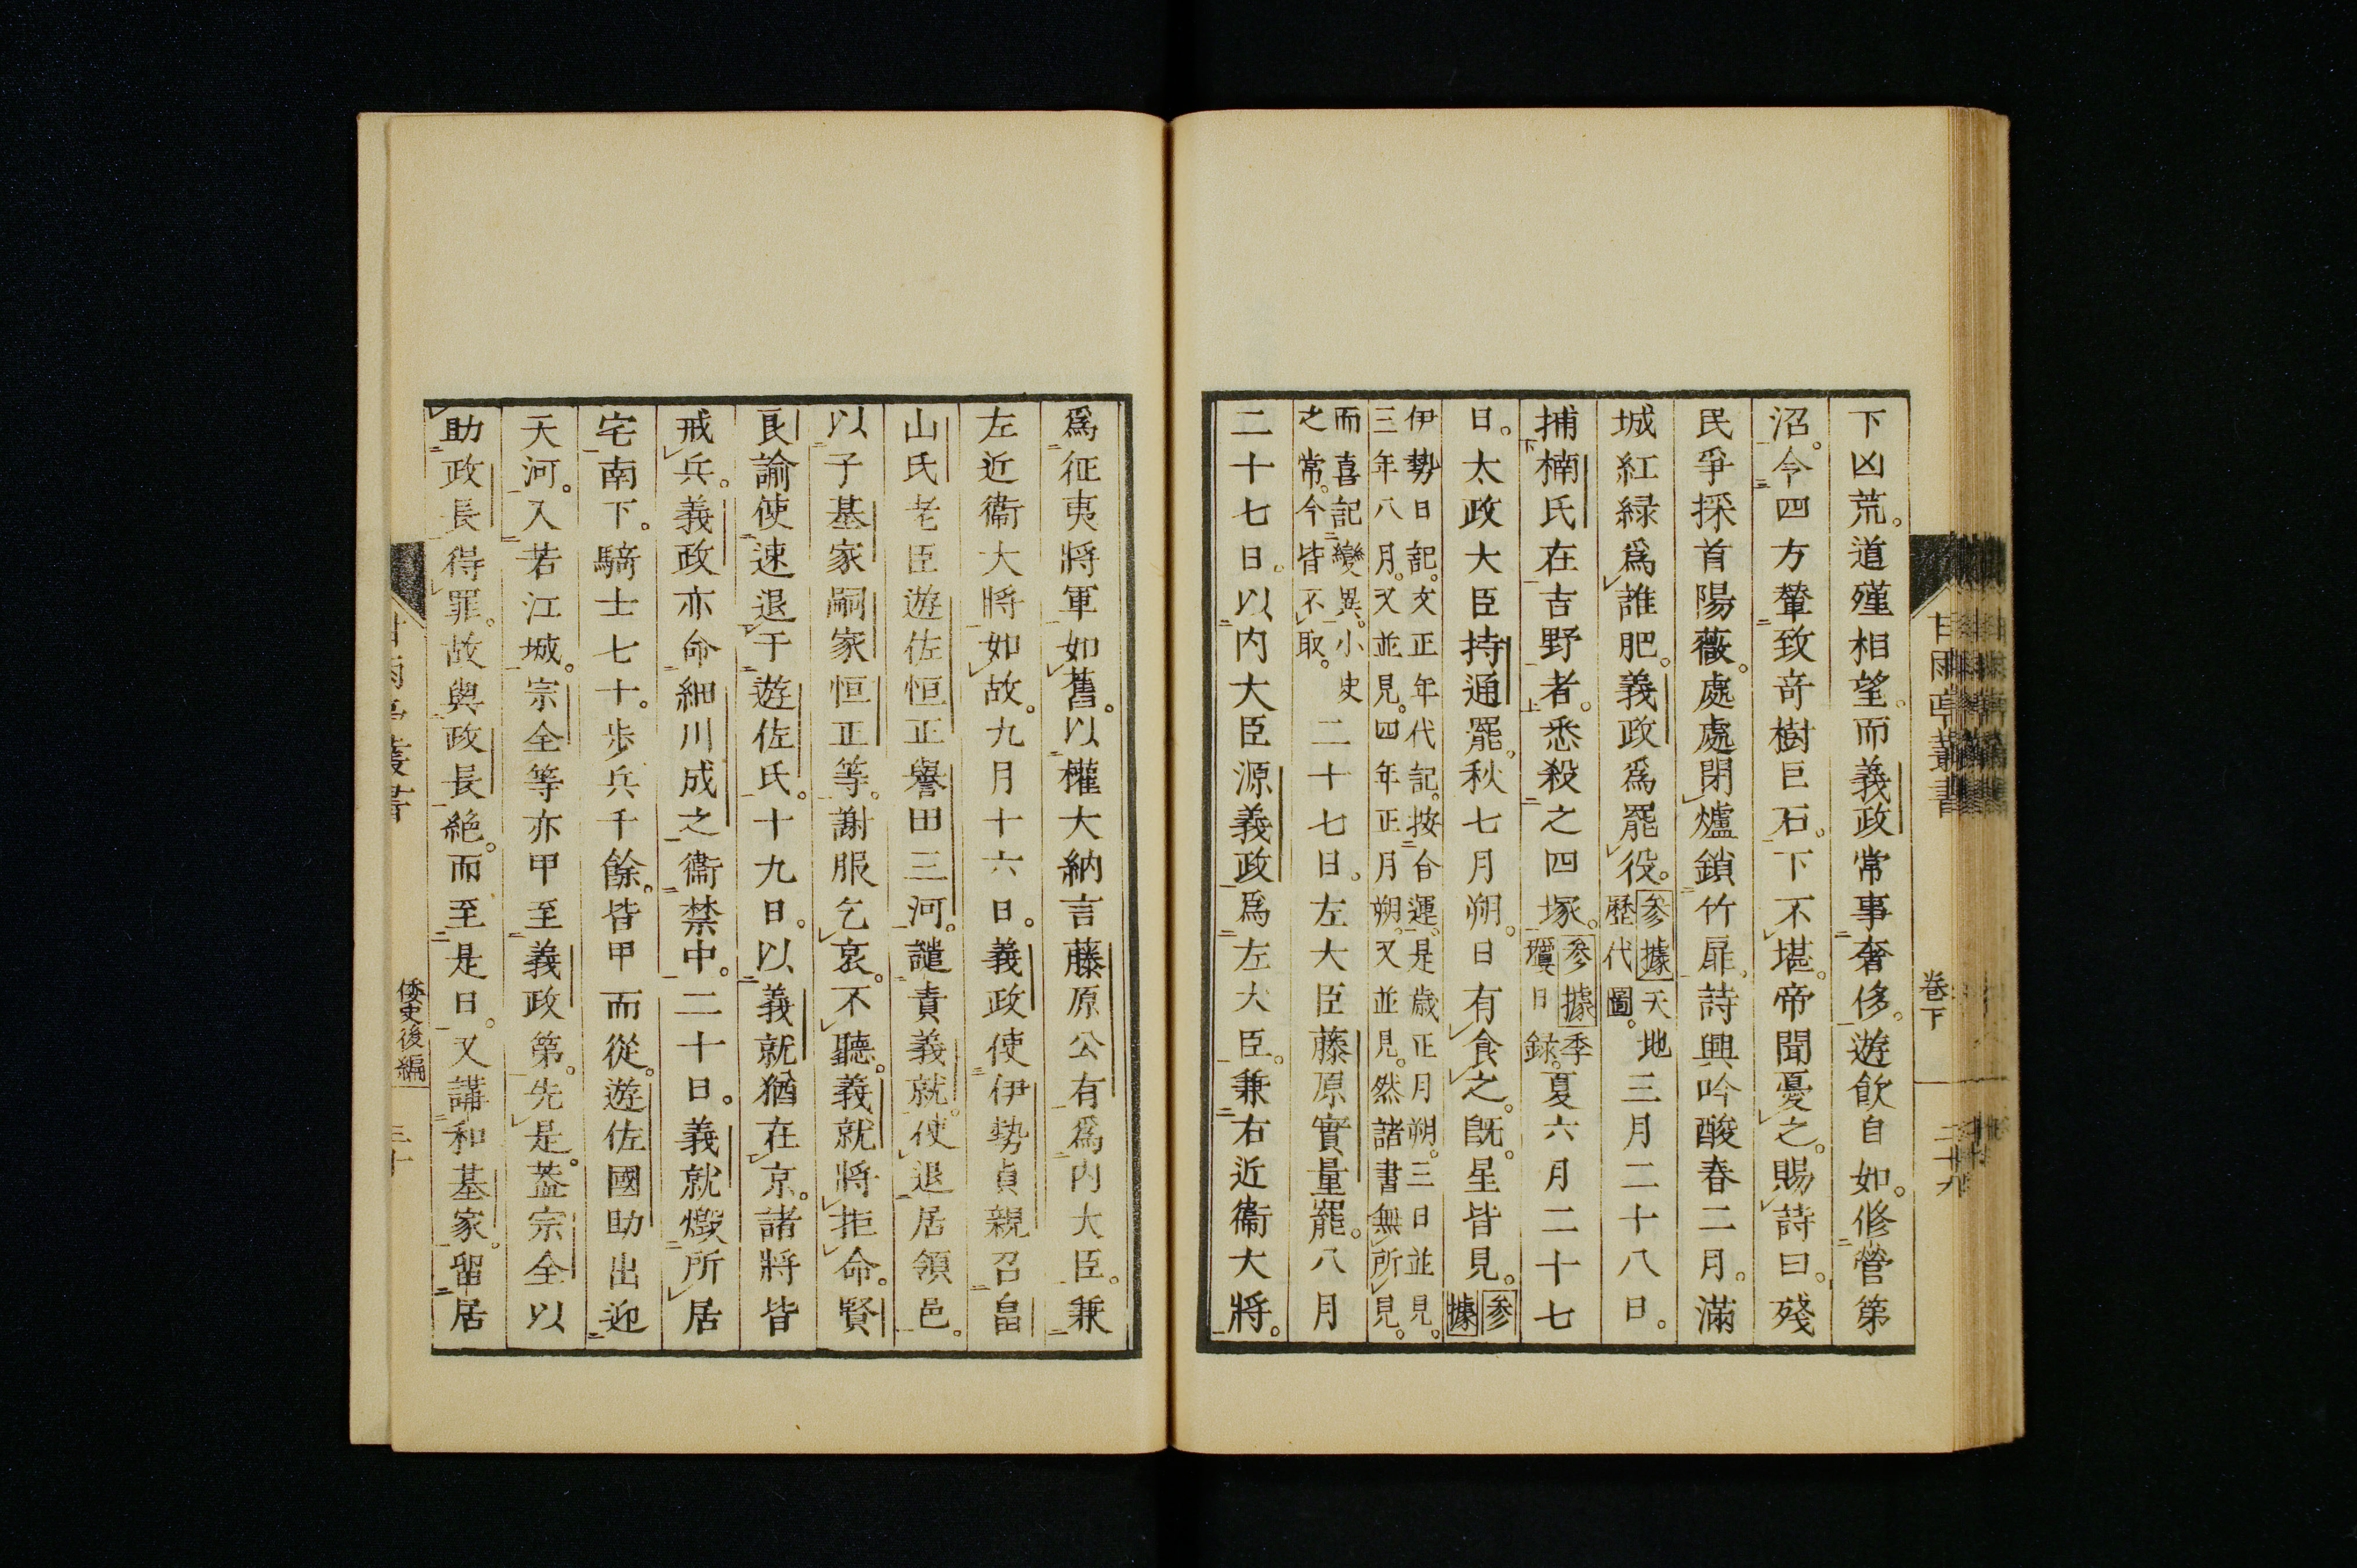 下凶荒。道殣相望。而義政常事奢侈。遊飲自如。修營第
沼。令四方輦致奇樹巨石。下不堪。帝聞憂之。賜詩曰。殘
民爭採首陽薇。處處閉爐鎖竹扉。詩興吟酸春二月。滿
城紅緑爲誰肥。義政爲罷役。參據天地歷代圖。三月二十八日。
捕楠氏在吉野者。悉殺之四塚。參據季瓊日錄。夏六月二十七
日。太政大臣持通罷。秋七月朔。日有食之。既。星皆見。參據
伊勢日記。文正年代記。按台運。是歲正月朔。三日並見。
三年八月。又並見。四年正月朔。又並見。然諸書無所見。
而喜記變異。小史
之常。今皆不取。
二十七日。左大臣藤原實量罷。八月
二十七日。以内大臣源義政爲左大臣。兼右近衞大將。
甘雨亭叢書
卷下
二十九
爲征夷將軍如舊。以權大納言藤原公有爲内大臣。兼
左近衞大將如故。九月十六日。義政使伊勢貞親召畠
山氏老臣遊佐恒正譽田三河。譴責義就。使退居領邑。
以子基家嗣家恒正等。謝服乞哀。不聽。義就將拒命。賢
良諭使速退于遊佐氏。十九日。以義就猶在京。諸將皆
戒兵。義政亦命細川成之衞禁中。二十日。義就燬所居
宅南下。騎士七十。歩兵千餘。皆甲而從。遊佐國助出迎
天河。入若江城。宗全等亦甲至義政第。先是。蓋宗全以
助政長得罪。故與政長絶。而至是日。又講和基家。留居
倭史後編
三十